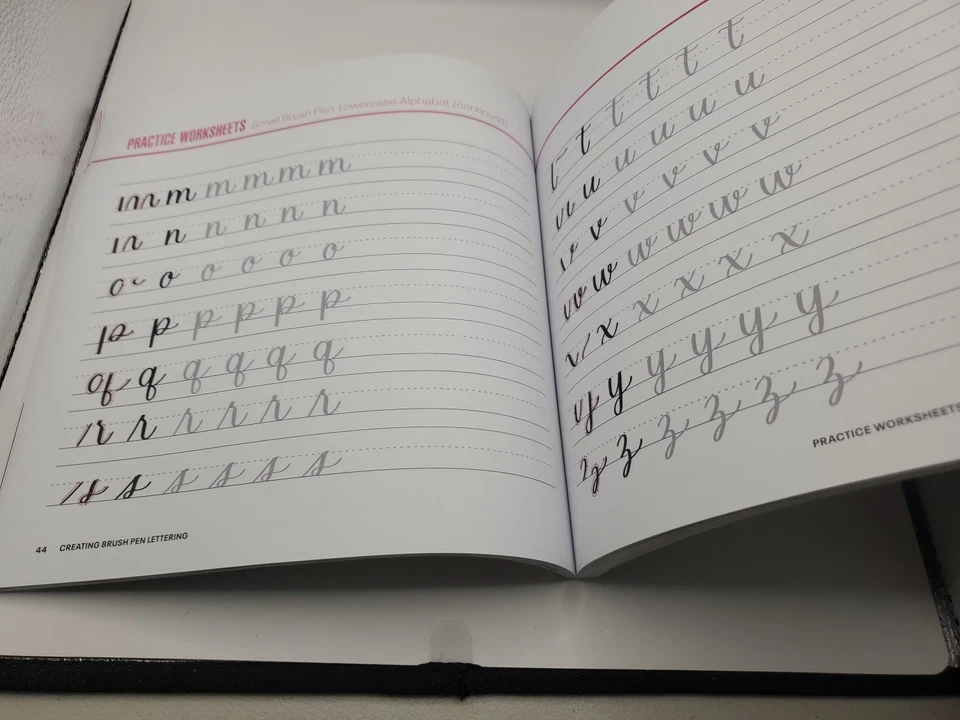 PRACTICE WORKSHEETS Small Brush Pen Lowercase Alphabet (continued)
m m m m m
n n n n n
o o o o o
p p p p p
q q q q q
r r r r r
s s s s s
44 CREATING BRUSH PEN LETTERING
t t t t
u u u u u
v v v v v
w w w w w
x x x x
y y y y y
z z z z z
PRACTICE WORKSHEETS